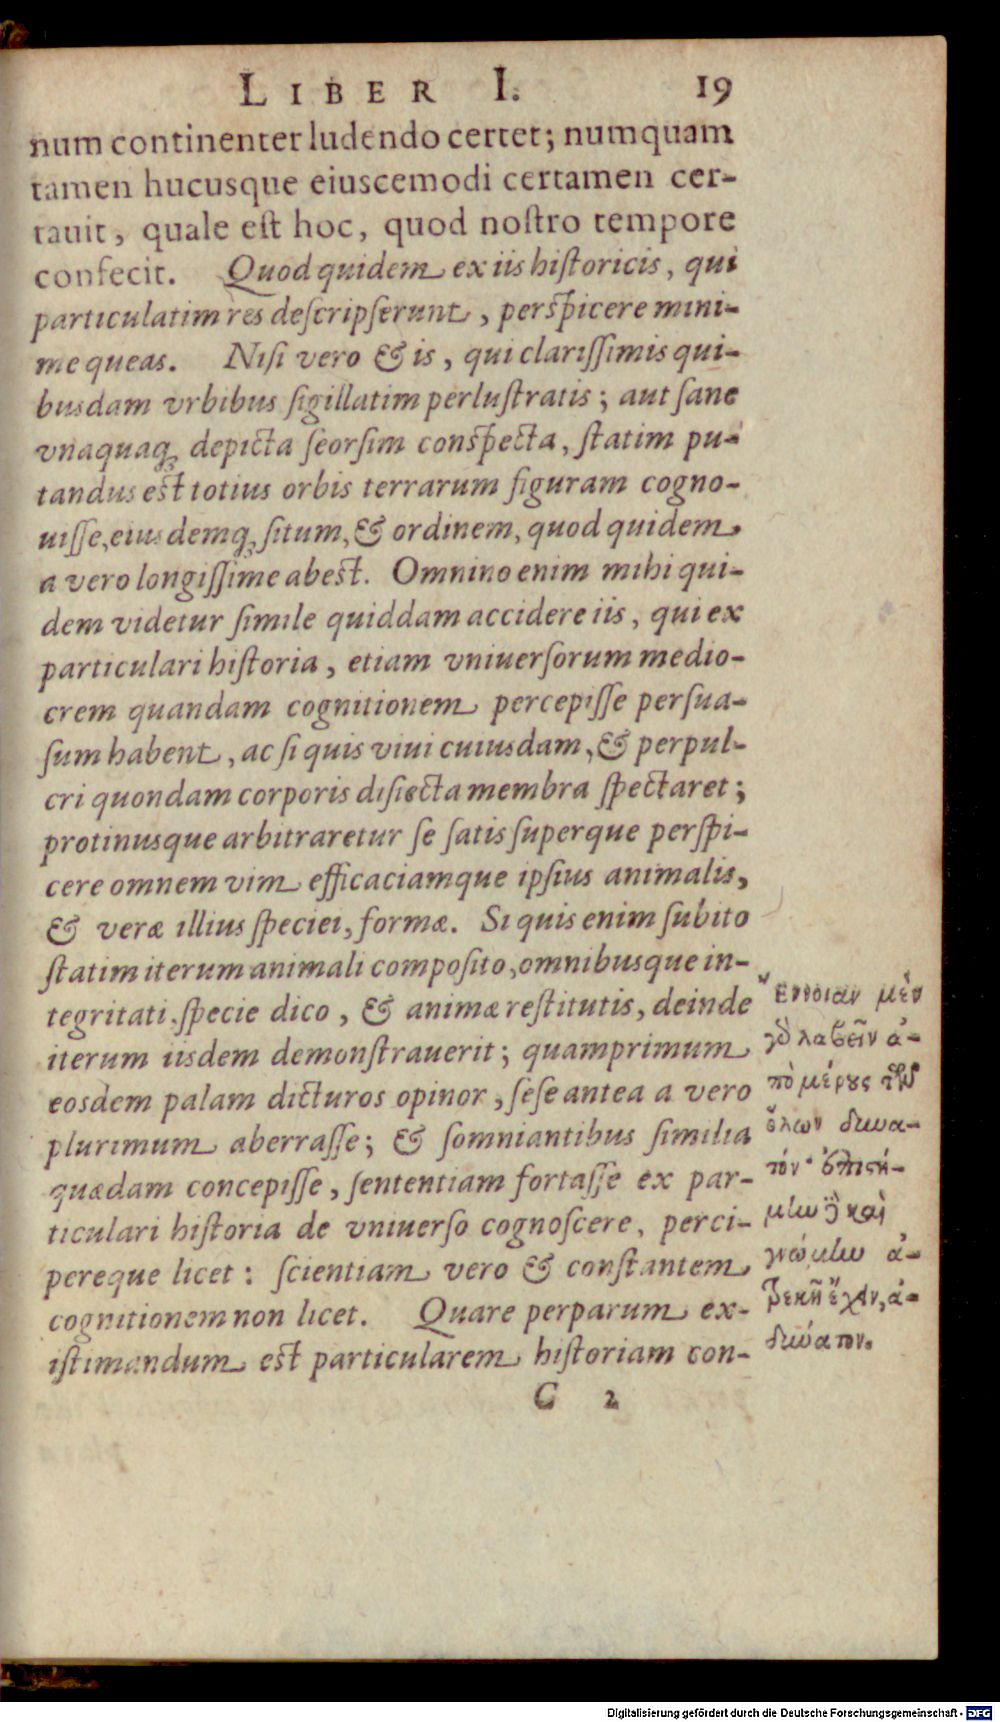 LIBER I. 19
num continenter ludendo certet; numquam
tamen hucusque eiuscemodi certamen cer-
tauit, quale est hoc, quod nostro tempore
confecit. Quod quidem ex iis historicis, qui
particulatim res descripserunt, perspicere mini-
me queas. Nisi vero & is, qui clarissimis qui-
busdam vrbibus sigillatim perlustratis; aut sane
vnaquaq; depicta seorsim conspecta, statim pu-
tandus est totius orbis terrarum figuram cogno-
uisse, eiusdemq; situm, & ordinem, quod quidem
a vero longissime abest. Omnino enim mihi qui-
dem videtur simile quiddam accidere iis, qui ex
particulari historia, etiam vniuersorum medio-
crem quandam cognitionem percepisse persua-
sum habent, ac si quis viui cuiusdam, & perpul-
cri quondam corporis disiecta membra spectaret;
protinusque arbitraretur se satis superque perspi-
cere omnem vim efficaciamque ipsius animalis,
& veræ illius speciei, formæ. Si quis enim subito
statim iterum animali composito, omnibusque in-
tegritati, specie dico, & animæ restitutis, deinde
iterum iisdem demonstrauerit; quamprimum
eosdem palam dicturos opinor, sese antea a vero
plurimum aberrasse; & somniantibus similia
quædam concepisse, sententiam fortasse ex par-
ticulari historia de vniuerso cognoscere, perci-
pereque licet: scientiam vero & constantem
cognitionem non licet. Quare perparum ex-
istimandum est particularem historiam con-
C 2
Ἔννοιαν μὲν
γὸ λαβεῖν ἀ-
πὸ μέρους τῶν
ὅλων δυνα-
τόν· ἐπιστή-
μην δὲ καὶ
γνώμην ἀ-
τρεκῆ ἔχειν, ἀ-
δύνατον.
Digitalisierung gefördert durch die Deutsche Forschungsgemeinschaft - DFG